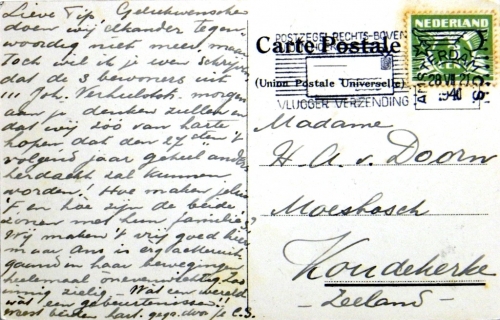 Lieve Tip, Gelukwenschen
doen wij elkander tegen-
woordig niet meer, maar
toch wil ik je even schrijven
dat de 3 bewoners uit
!!! Joh. Verhulststr. morgen
aan je denken zullen en
dat wij zoo van harte
hopen dat den 27sten 't
volgend jaar geheel anders
herdacht zal kunnen
worden! Hoe maken jelui
't en hoe zijn de beide
zonen met hun familie's?
Wij maken 't vrij goed hier
maar Ans is
in haar bewegingen
helemaal onevenwichtig
zielig. Wat een wereld
wat een gebeurtenissen!!
beste hart. je C.S.
POSTZEGEL RECHTS-BOVEN
Carte Postale
(Union Postale Universelle)
VLUGGER VERZENDING
NEDERLAND
AMSTERDAM
28 VII 21
1940
Madame
H. A. v. Doorn
Moesbosch
Koudekerke
- Zeeland -